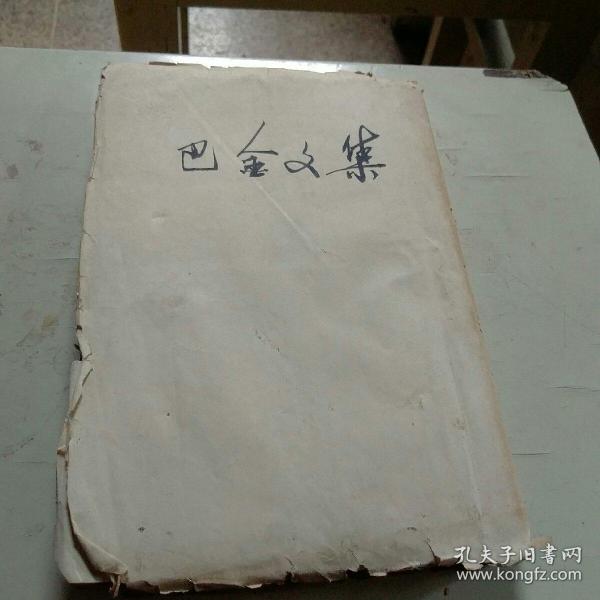 巴金文集
孔夫子旧書网
www.kongfz.com